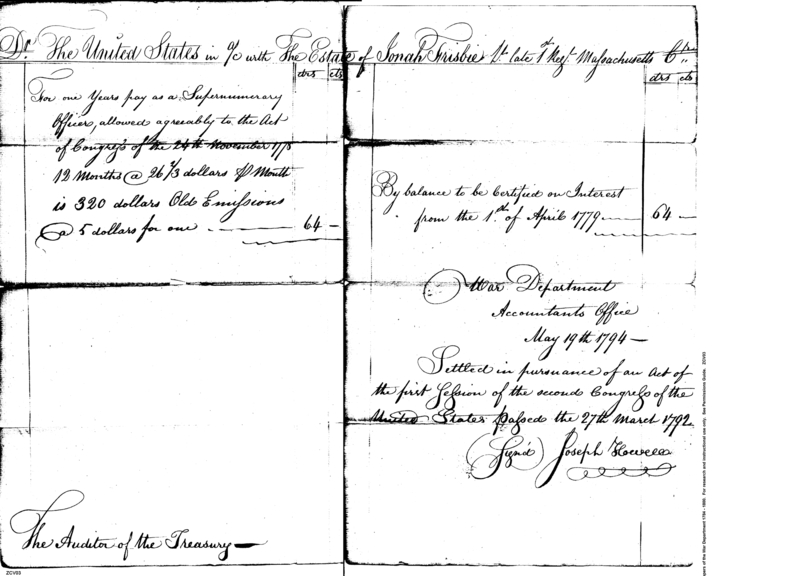 Dr. The United States in a/c with The Estate of Jonah Frisbie Lt. late 1st Regt. Massachusetts Ctra.
drs cts
For one Years pay as a Supernumerary
Officer, allowed agreeably to the Act
of Congress of the 24th November 1778
12 Months @ 26 2/3 dollars ⅌ Month
is 320 dollars Old Emissions
@ 5 dollars for one 64 —
The Auditor of the Treasury —
drs cts
By balance to be Certified on Interest
from the 1st. of April 1779 64 —
War Department
Accountants Office
May 19th 1794 —
Settled in pursuance of an Act of
the first Session of the second Congress of the
United States passed the 27th March 1792
(Sign'd) Joseph Howell
ZCV03
Papers of the War Department 1784 - 1800. For research and instructional use only. See Permissions Guide. ZCV03